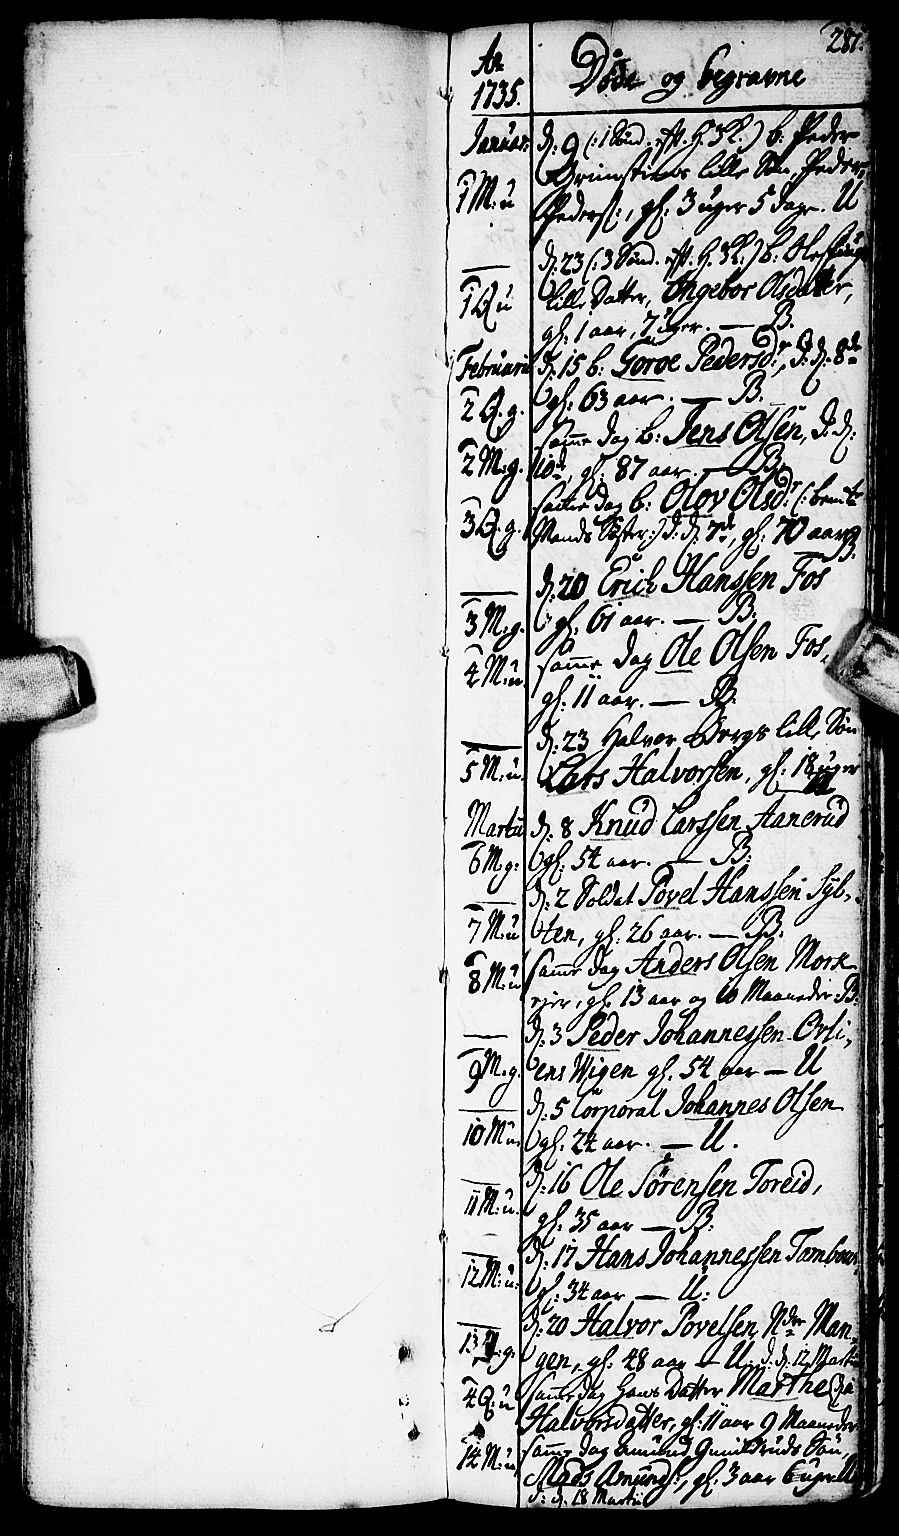 287.
Aº
1735.
Døde og begravne
Januar: d: 9 (: 1 Sønd. eft. H. 3 K.) b: Peder
Grimstuens lille Søn, Peder
1 M: u Peders:, gl: 3 uger 5 dage. U
d: 23 (: 3 Sønd. eft. H. 3 K.) b: Ole
1 Q u lille Datter, Ingebor Olsdatter,
gl: 1 aar, 7 uger. — B.
Februarii d: 15 b: Goroe Pedersdr, d: d: 8de
2 Q. g. gl: 63 aar. — B.
samme dag b: Jens Olsen, d: d:
2 M. g. 10de, gl: 87 aar. — B.
samme dag b: Olov Olsdr (: bemte
3 Q. g. Mands Søster:) d: d: 7de, gl: 70 aar B.
d: 20 Erich Hanssen Fos
3 M. g. gl: 61 aar. — B.
4 M: u. samme dag Ole Olsen Fos,
gl: 11 aar. — B.
d: 23 Halvor Bergs lille Søn
5 M: u. Lars Halvorsen, gl: 18 uger
U
Martii d: 8 Knud Larssen Aanerud
6 M. g: gl: 54 aar. — B.
d: 2 Soldat Povel Hanssen Syb,
7 M: u ten, gl: 26 aar. — B.
8 M: u samme dag Anders Olsen Mork
rier, gl: 13 aar og 10 Maaneder B.
d: 3 Peder Johannessen Ovli,
9 M. g. ens Wigen gl: 54 aar — U
d: 5 Corporal Johannes Olsen
10 M u. gl: 24 aar. — U.
d: 16 Ole Sørensen Toreid,
11 M: u. gl: 35 aar — B.
d: 17 Hans Johannessen Tambour
12 M: u: gl: 34 aar — U:
d: 20 Halvor Povelsen Nder Man,
13 M. g. gen, gl: 48 aar — U. d. d. 12 Martii
4 Q: u samme dag hans Datter Marthe
Halvorsdatter, gl: 11 aar 9 Maaneder
14 M: u samme dag Amund Gunildruds Søn,
Mads Amunds:, gl: 3 aar 6 uger U
d: d. 18 Martii